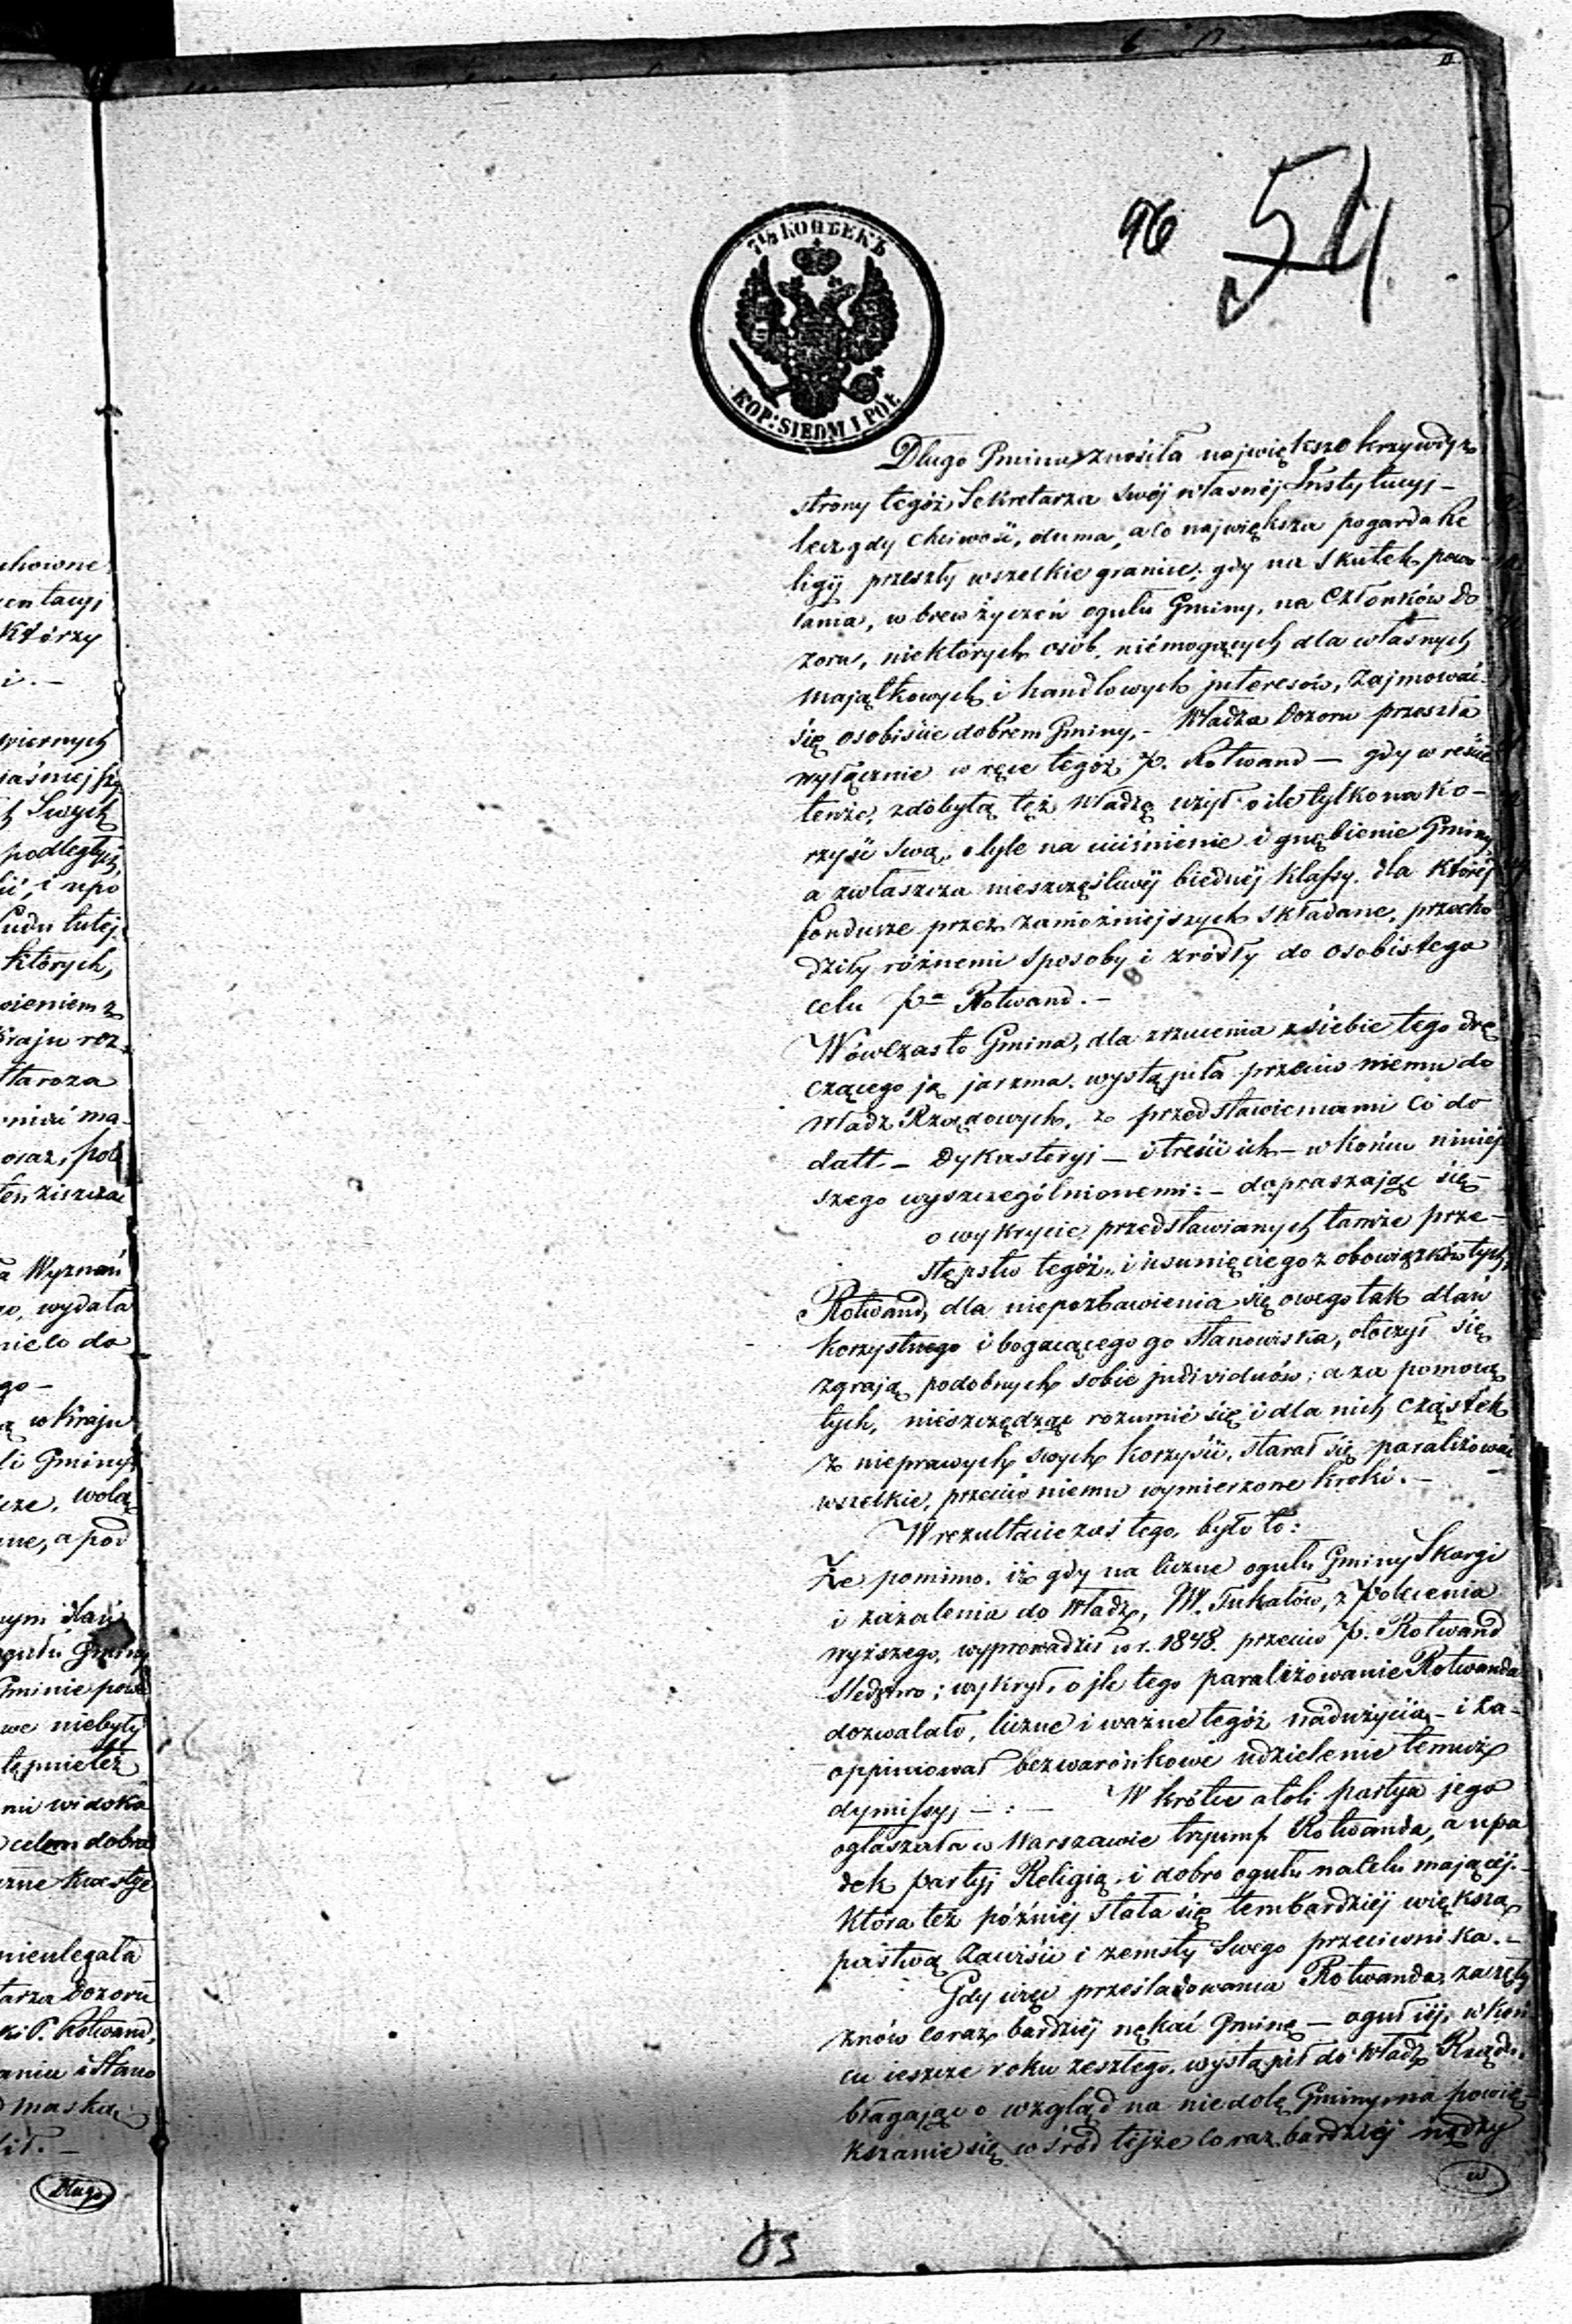 96 54
7½ КОПѢЕКЪ
KOP: SIEDM I PÓŁ
Długo Gmina znosiła największe krzywdy z
strony tegóż Sekretarza swéj własnéj Instytucyj –
lecz gdy chciwość, duma, a co największa pogarda Re
ligij przeszły wszelkie granice; gdy na skutek powo
łania, w brew życzeń ogułu Gminy, na Członków Do
zoru, niektórych osób, niemogących dla własnych
majątkowych i handlowych interesów, zajmować
się osobiście dobrem Gminy, – Władza Dozoru przeszła
wyłącznie w ręce tegóż p. Rotwand – gdy w reście
tenże, zdobytą też Władzę użył o ile tylko na ko–
rzyść swą, o tyle na uciśnienie i gnębienie Gminy,
a zwłaszcza nieszczęśliwéj biednéj klassy, dla któréj
fondusze przez zamożniejszych składane, przecho
dziły różnemi sposoby i zródły do osobistego
celu pa Rotwand. –
Wówczas to Gmina, dla zrzucenia z siebie tego drę
czącego ją jarzma, wystąpiła przeciw niemu do
Władz Rządowych, z przedstawieniami co do
datt – Dykasteryj – i treści ich – w końcu niniéj
szego wyszczególnionemi: – dopraszając się –
o wykrycie przedstawianych tamże prze–
stępstw tegóż, i usunięcie go z obowiązków tych,
Rotwand, dla niepozbawienia się owego tak dlań
korzystnego i bogacącego go stanowiska, otoczył się
zgrają podobnych sobie individuów; a za pomocą
tych, nieszczędząc rozumié się i dla nich cząstek
z nieprawych swych korzyści, starał się paraliżować
wszelkie, przeciw niemu wymierzone kroki. –
W rezultacie zaś tego, było to:
Że pomimo, iż gdy na liczne ogułu Gminy Skargi
i zażalenia do Władz, W. Tukałów, z polecenia
wyższego, wyprowadził w r. 1848. przeciw p. Rotwand
śledztwo; wykrył, o ile tego paraliżowanie Rotwanda
dozwalało, liczne i ważne tegóż nadużycia – i za–
oppiniował bezwarónkowé udzielenie temuż
dymissyj – : – W krótce atoli partya jego
ogłaszała w Warszawie tryumf Rotwanda, a upa
dek partyj Religią i dobro ogułu na celu mającéj. –
Która też późniéj stała się tembardziéj większą
pastwą zawiści i zemsty swego przeciwnika. –
Gdy więc prześladowania Rotwanda zaczęły
znów coraz bardziéj nękać Gminę – oguł jéj, w koń
cu ieszcze roku zeszłego, wystąpił do Władz Rządu,
błagając o wzgląd na niedolę Gminy na powię–
kszanie się w śród téjże coraz bardziéj nędzy
w
chowne
entacyj
którzy
i. –
wiernych
Swych
podległych,
ludu tutéj
których,
Kraju roz
Wyznań
wydała
go –
w Kraju
li Gminy,
wolą
a pod
ogułu Gminy
Gminie powo
we niebyły
widoka
celem dobra
kwestye
nieulegała
Dozoru
P. Rotwand,
maską
Długo